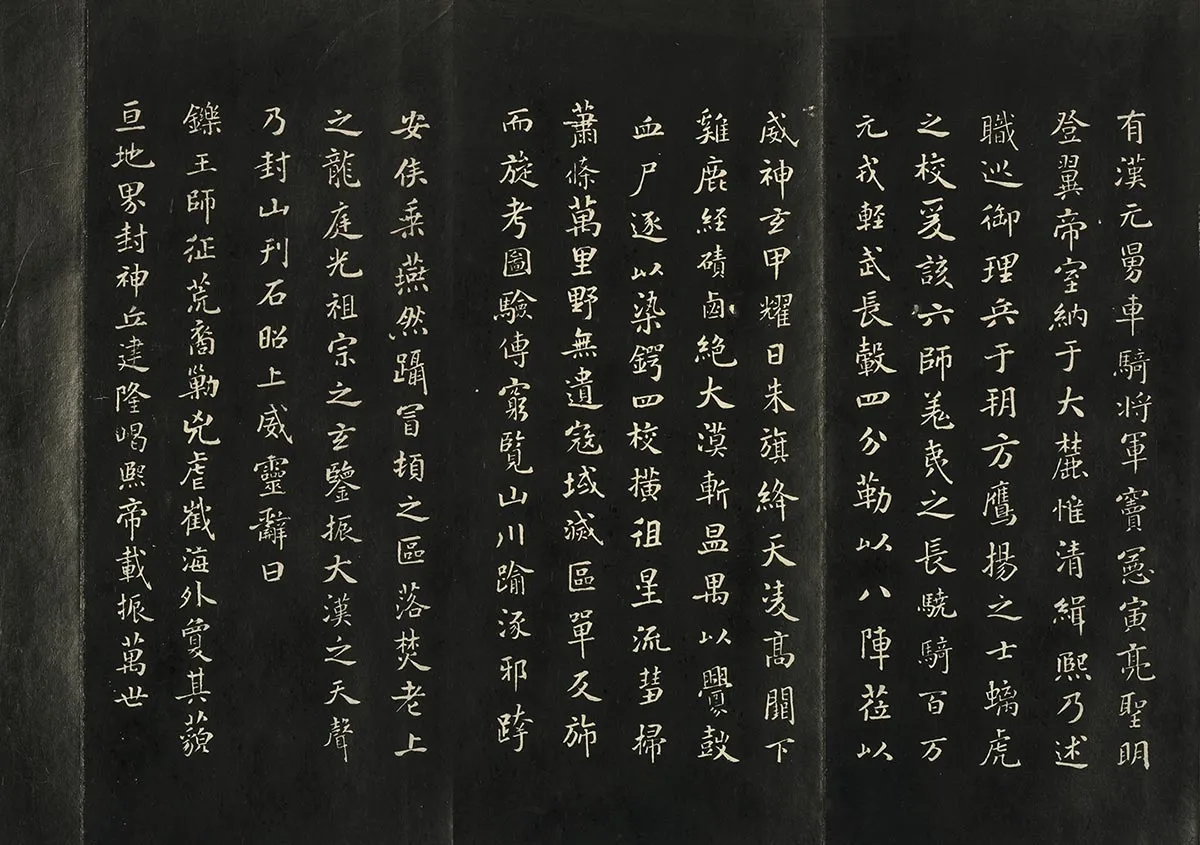 有漢元舅車騎将軍竇憲寅亮聖明
登翼帝室納于大麓惟清緝熙乃述
職巡御理兵于朔方鷹揚之士螭虎
之校爰該六師羗夷之長驍騎百万
元戎輕武長轂四分勒以八陣莅以
威神玄甲耀日朱旗絳天淩髙闕下
雞鹿經磧鹵絶大漠斬昷禺以釁鼓
血尸逐以染鍔四校横徂星流彗掃
蕭條萬里野無遺寇域滅區單反斾
而旋考圖驗傳窮覽山川踰涿邪跨
安侯乗燕然躡冒頓之區落焚老上
之龍庭光祖宗之玄鑒振大漢之天聲
乃封山刊石昭上威靈辭曰
鑠王師征荒裔勦兇虐截海外敻其藐
亘地界封神丘建隆嵑熙帝載振萬世